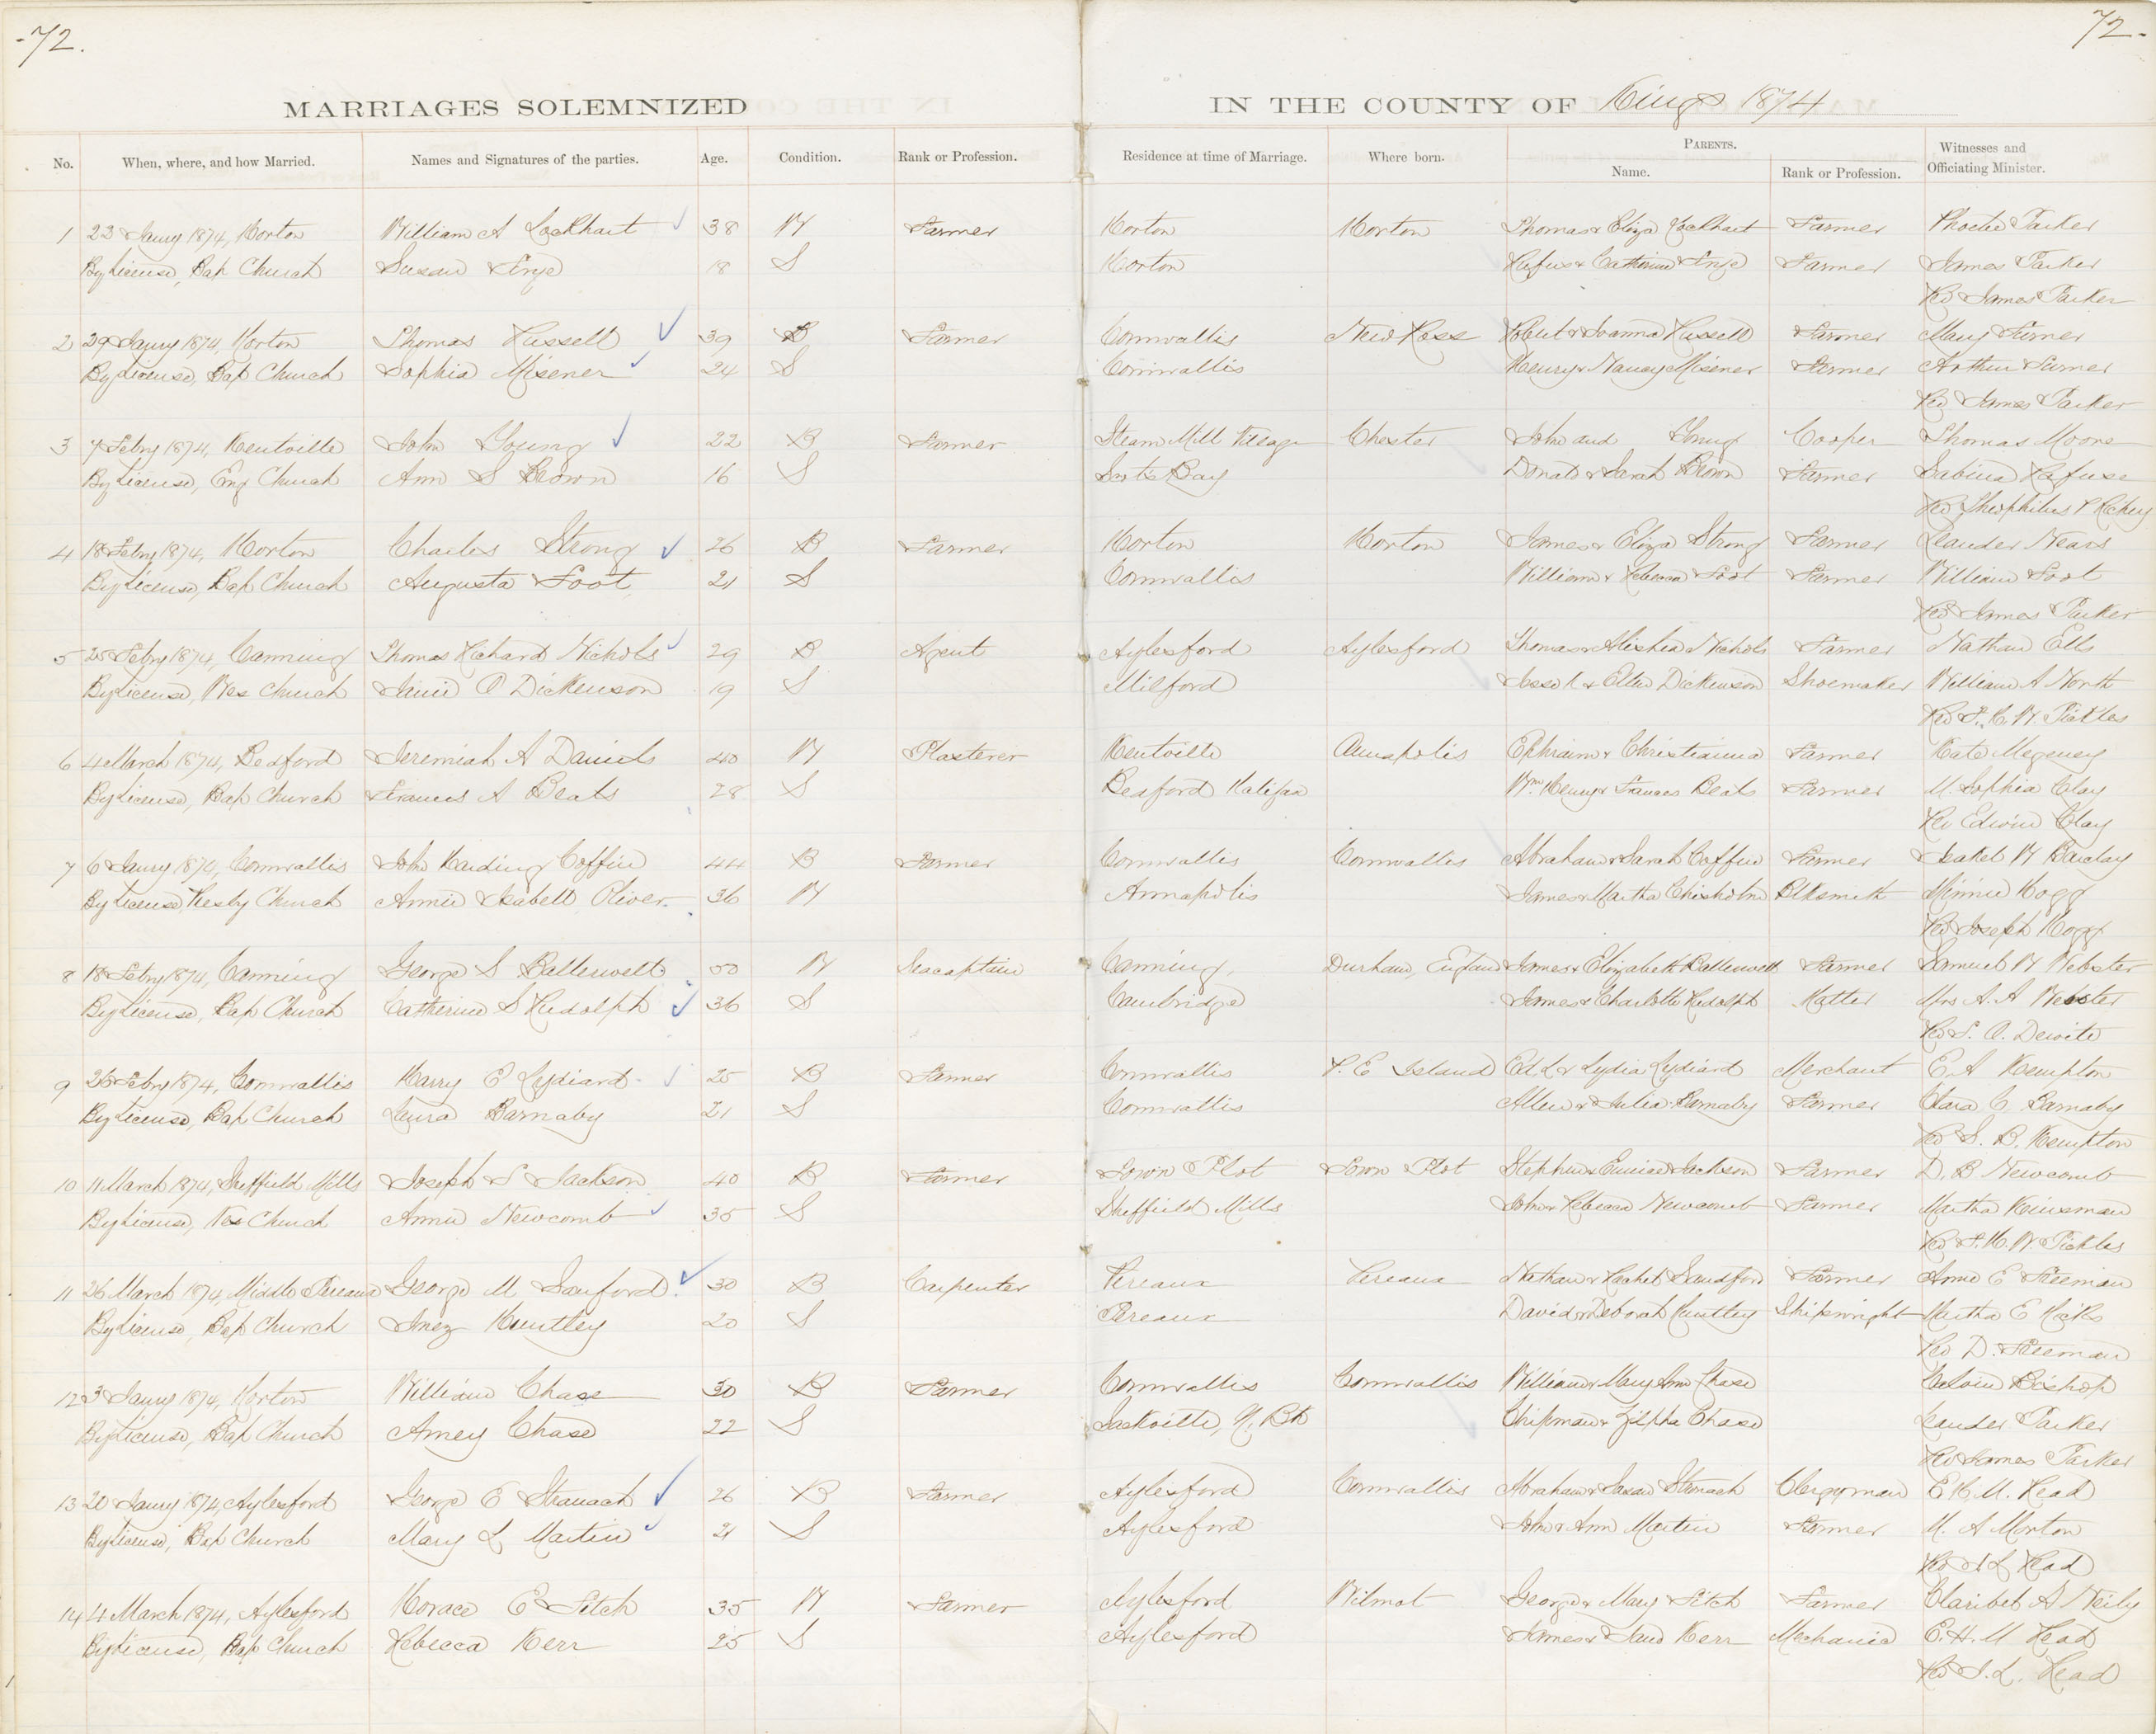 -72.
72-
MARRIAGES SOLEMNIZED IN THE COUNTY OF Kings 1874
No. When, where, and how Married. Names and Signatures of the parties. Age. Condition. Rank or Profession. Residence at time of Marriage. Where born. PARENTS. Name. Rank or Profession. Witnesses and Officiating Minister.
1 23 Jany 1874, Horton William A Lockhart 38 W Farmer Horton Horton Thomas & Eliza Lockhart Farmer Phoebe Parker
By License, Bap Church Susan 18 S Horton Rufus & Catherine Farmer James Parker
Rev James Parker
2 29 Jany 1874, Horton Thomas Russell 39 B Farmer Cornwallis New Ross Robert & Joanna Russell Farmer Mary
By License, Bap Church Sophia Misener 24 S Cornwallis Henry & Nancy Misener Farmer Arthur
Rev James Parker
3 7 Febry 1874, Kentville John Young 22 B Farmer Steam Mill Village Chester John and Young Cooper Thomas Moore
By License, Eng Church Ann S Brown 16 S Scots Bay Donald & Sarah Brown Farmer Sabina Rafuse
Rev Theophilus Richey
4 18 Febry 1874, Horton Charles Strong 26 B Farmer Horton Horton James & Eliza Strong Farmer Leander
By License, Bap Church Augusta Foot 21 S Cornwallis William & Rebecca Foot Farmer William Foot
Rev James Parker
5 25 Febry 1874, Canning Thomas Richard Nichols 29 B Agent Aylesford Aylesford Thomas & Nichols Farmer Nathan Ells
By License, Wes Church Janie O Dickenson 19 S Milford & Ellen Dickenson Shoemaker William A North
Rev F. H. W. Pickles
6 4 March 1874, Bedford Jeremiah A Daniels 40 W Plasterer Kentville Annapolis Ephraim & Christianna Farmer Kate Megeney
By License, Bap Church Frances A Beals 28 S Bedford Halifax Wm Henry & Frances Beals Farmer M. Sophia Clay
Rev Edwin Clay
7 6 Jany 1874, Cornwallis John Harding Coffin 44 B Farmer Cornwallis Cornwallis Abraham & Sarah Coffin Farmer Isabel W Barclay
By License, Presby Church Annie Isabell Oliver 36 W Annapolis James & Martha Chisholm Blksmith Minnie Hogg
Rev Joseph Hogg
8 18 Febry 1874, Canning George S 50 W Seacaptain Canning, Durham, England James & Elizabeth Farmer Samuel W Webster
By License, Bap Church Catherine S Rudolph 36 S Cambridge James & Charlotte Rudolph Hatter Mrs A. A Webster
Rev S. Dewite
9 26 Febry 1874, Cornwallis Harry E Lydiard 25 B Farmer Cornwallis P. E Island Ed L & Lydia Lydiard Merchant E. A Kempton
By License, Bap Church Laura Barnaby 21 S Cornwallis Allen & Julia Barnaby Farmer Clara C Barnaby
Rev S. B. Kempton
10 11 March 1874, Sheffield Mills Joseph S Jackson 40 B Farmer Town Plot Town Plot Stephen & Eunice Jackson Farmer D. B Newcomb
By License, Wes Church Annie Newcomb 35 S Sheffield Mills John & Rebecca Newcomb Farmer Martha Kinsman
Rev F. H. W. Pickles
11 26 March 1874, Middle Pereaux George M Sanford. 30 B Carpenter Pereaux Pereaux Nathan & Rachel Sandford Farmer Annie E Freeman
By License, Bap Church Inez Huntley 20 S Pereaux David & Deborah Huntley Shipwright Martha E Hicks
Rev D. Freeman
12 3 Jany 1874, Horton William Chase 30 B Farmer Cornwallis Cornwallis William & Mary Ann Chase Calvin Bishop
By License, Bap Church Amey Chase 22 S Sackville, N. Bk Chipman & Zilpha Chase Leander Parker
Rev James Parker
13 20 Jany 1874, Aylesford George E Stronach 26 B Farmer Aylesford Cornwallis Abraham & Susan Stronach Clergyman E. H. M. Read
By License, Bap Church Mary L Martin 21 S Aylesford John & Ann Martin Farmer M. A Morton
Rev J L Read
14 4 March 1874, Aylesford Horace E Fitch 35 W Farmer Aylesford Wilmot George & Mary Fitch Farmer Claribel A Neily
By License, Bap Church Rebecca Kerr 25 S Aylesford James & Jane Kerr Mechanic E. H. M Read
Rev J. L. Read